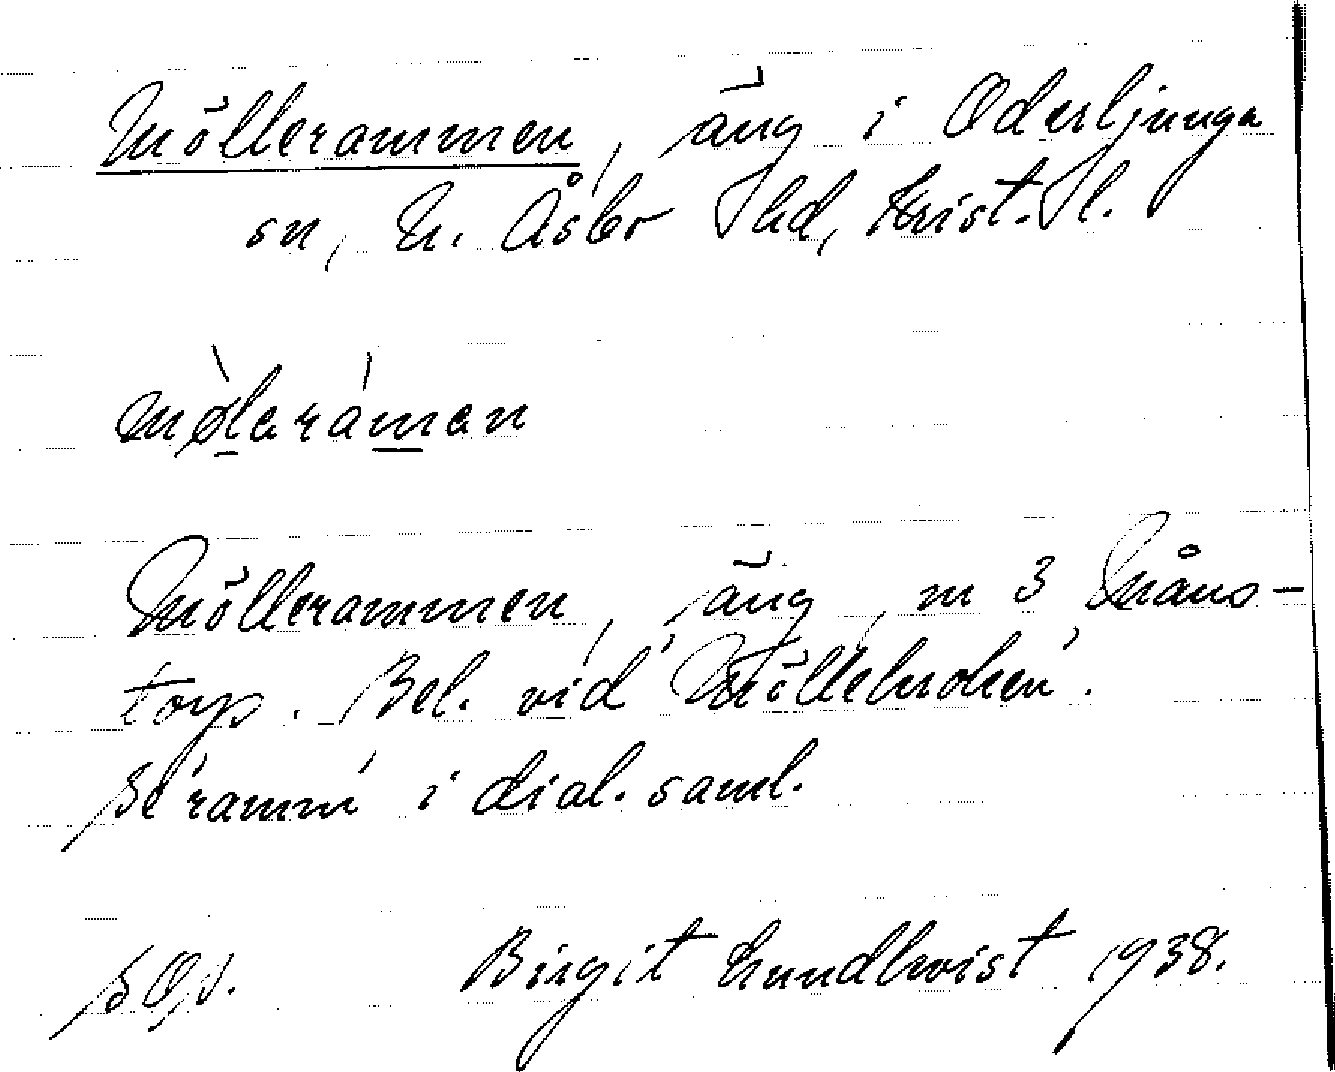 Möllerammen, äng i Oderljunga
sn, N. Åsbo hd, Krist. l.
mølaráman
Möllerammen, äng, m 3 Måns-
torp. Bel. vid 'Möllekroken'.
Se 'ramm' i dial. saml.
Birgit Lundkvist 1938.